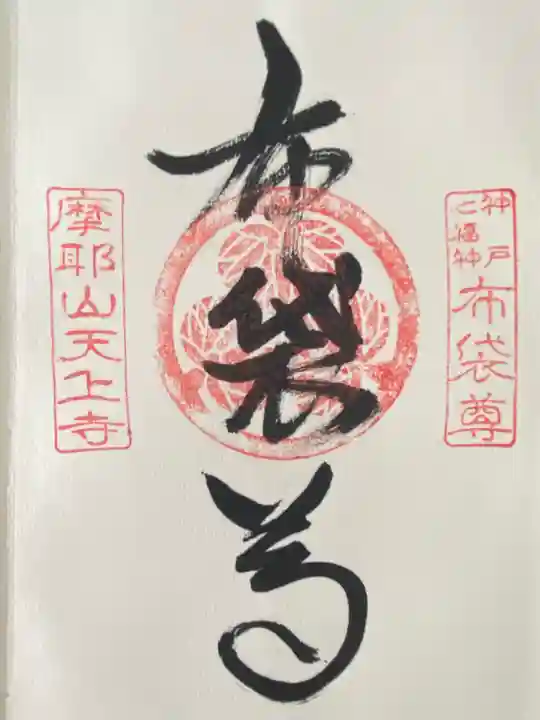 神戸
七福神
布袋尊
布袋尊
摩耶山天上寺